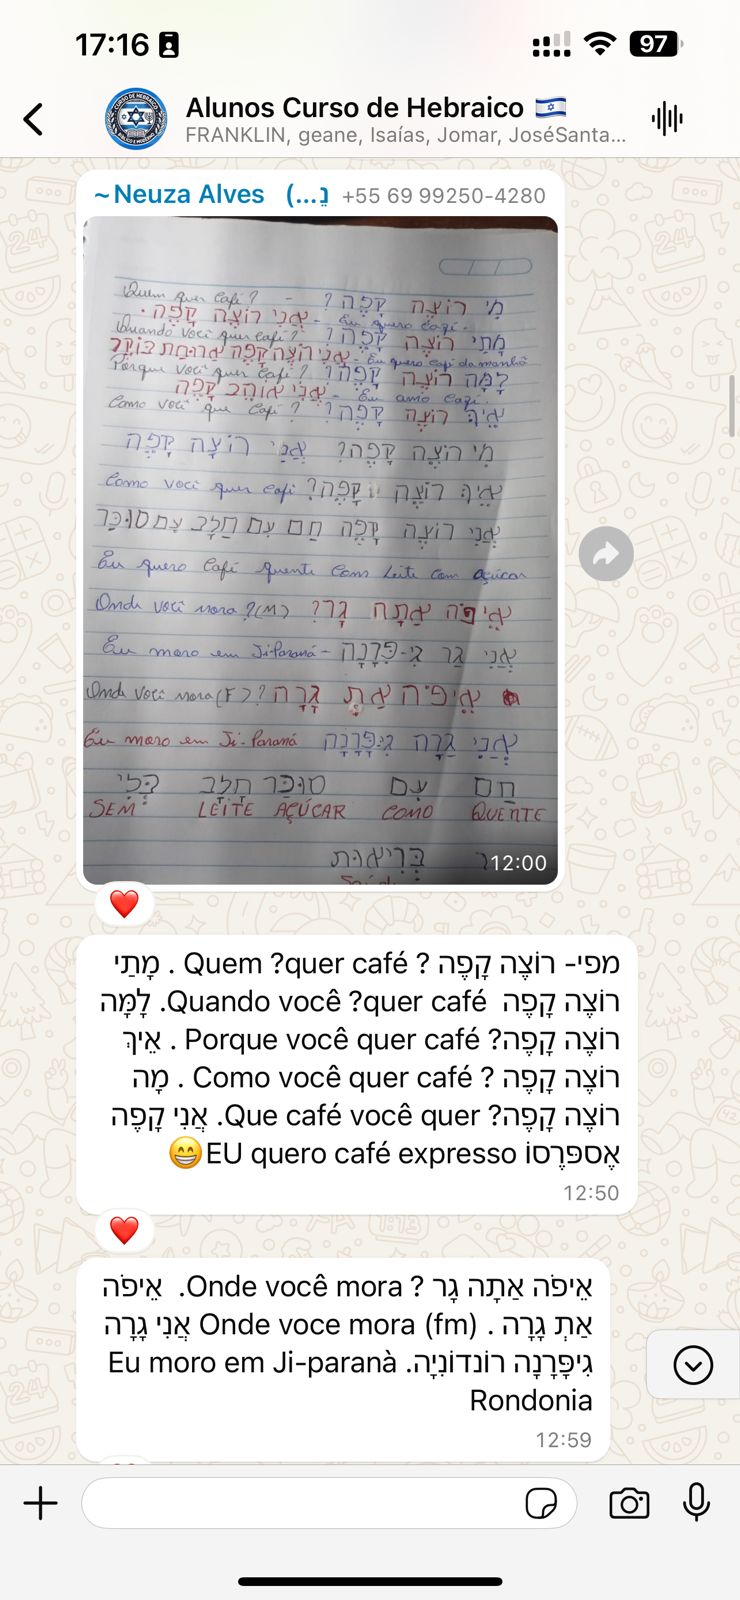 17:16
97
Alunos Curso de Hebraico 🇮🇱
FRANKLIN, geane, Isaías, Jomar, JoséSanta...
~Neuza Alves (...נ +55 69 99250-4280
Quem quer Café? - מִי רוֹצֶה קָפֶה?
אֲנִי רוֹצֶה קָפֶה. - Eu quero café.
Quando você quer café? מָתַי רוֹצֶה קָפֶה?
אֲנִי רוֹצֶה קָפֶה ארוחת בוקר - Eu quero café da manhã
Porque você quer café? לָמָה רוֹצֶה קָפֶה?
אֲנִי אוֹהֵב קָפֶה - Eu amo café.
Como você que Café? אֵיךְ רוֹצֶה קָפֶה?
מִי רוֹצֶה קָפֶה? אֲנִי רוֹצֶה קָפֶה
Como você quer café? אֵיךְ רוֹצֶה קָפֶה?
אֲנִי רוֹצֶה קָפֶה חַם עִם חָלָב עִם סוּכַּר
Eu quero Café quente com Leite com açúcar
Onde você mora?(M) אֵיפֹה אַתָּה גָר?
Eu moro em Ji-Paraná - אֲנִי גַר גִ'-פָּרָנָה
Onde você mora(F)? אֵיפֹה אַתְ גָרָה?
Eu moro em Ji-Paraná אֲנִי גַרָה גִ'פָּרָנָה
חַם עִם סוּכַּר חָלָב בְּלִי
SEM LEITE AÇÚCAR COMO QUENTE
בְּרִיאוּת
12:00
מפי- רוֹצֶה קָפֶה ? Quem ?quer café . מָתַי
רוֹצֶה קָפֶה Quando você ?quer café. לָמָּה
רוֹצֶה קָפֶה? Porque você quer café . אֵיךְ
רוֹצֶה קָפֶה ? Como você quer café . מָה
רוֹצֶה קָפֶה? Que café você quer. אֲנִי קָפֶה
אֶספּרֶסוֹ EU quero café expresso😁
12:50
אֵיפֹה אַתָה גָר ? Onde você mora. אֵיפֹה
אַתְ גָרָה . Onde voce mora (fm) אֲנִי גָרָה
גִיפָּרָנָה רוֹנדוֹנִיָה. Eu moro em Ji-paranà
Rondonia
12:59